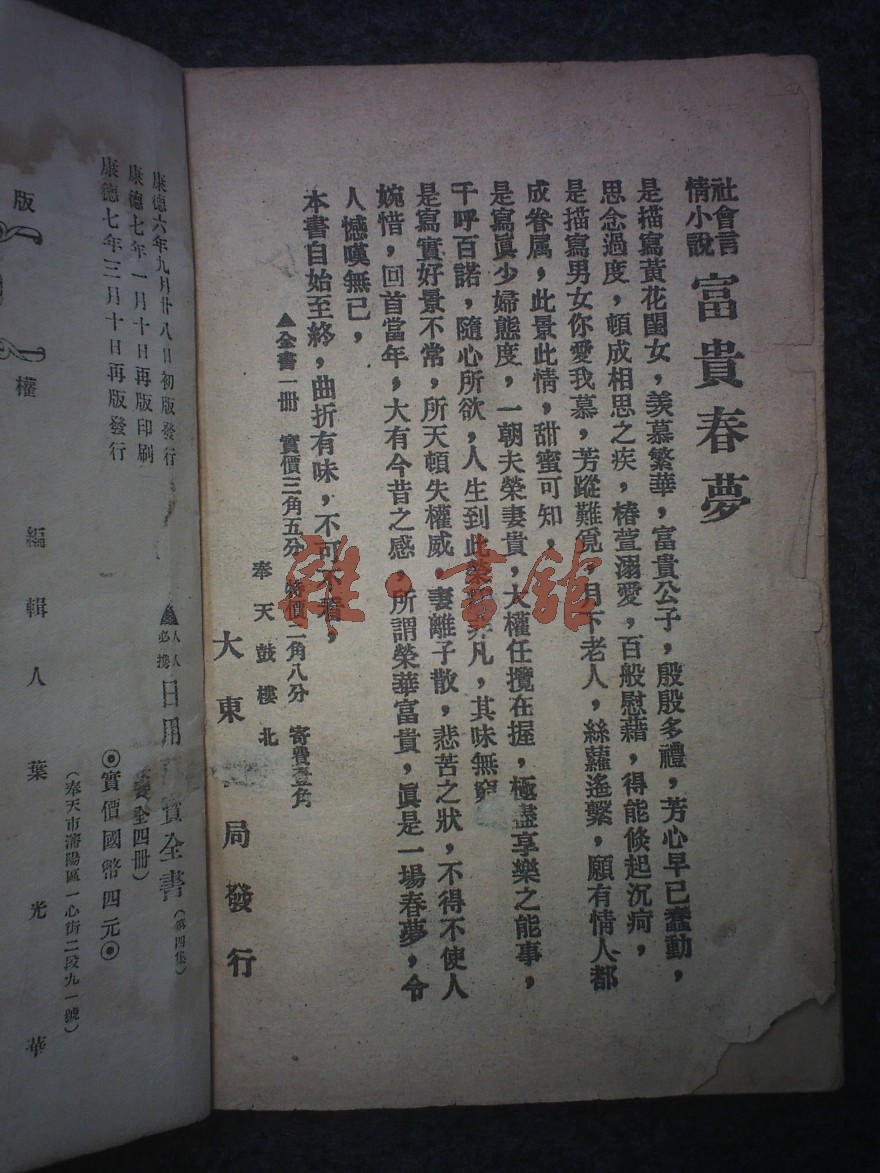 社會言
情小說
富貴春夢
是描寫黃花閨女，羨慕繁華，富貴公子，殷殷多禮，芳心早已蠢動，
思念過度，頓成相思之疾，椿萱溺愛，百般慰藉，得能倏起沉疴，
是描寫男女你愛我慕，芳蹤難覓，月下老人，絲蘿遙繫，願有情人都
成眷属，此景此情，甜蜜可知，
是寫眞少婦態度，一朝夫榮妻貴，大權任攬在握，極盡享樂之能事，
千呼百諾，隨心所欲，人生到此榮 非凡，其味無窮
是寫實好景不常，所天頓失權威，妻離子散，悲苦之狀，不得不使人
婉惜，回首當年，大有今昔之感，所謂榮華富貴，眞是一場春夢，令
人憾嘆無已，
本書自始至終，曲折有味，不可不看，
▲全書一冊 實價三角五分 特價二角八分 寄費壹角
奉天鼓樓北
大東 局發行
雜·書館
康德六年九月廿八日初版發行
康德七年一月十日再版印刷
康德七年三月十日再版發行
▲人人必携
日用 寶全書（第四集）
全四冊）
◉實價國幣四元◉
（奉天市瀋陽區一心街二段九一號）
編輯人 葉光華
版權